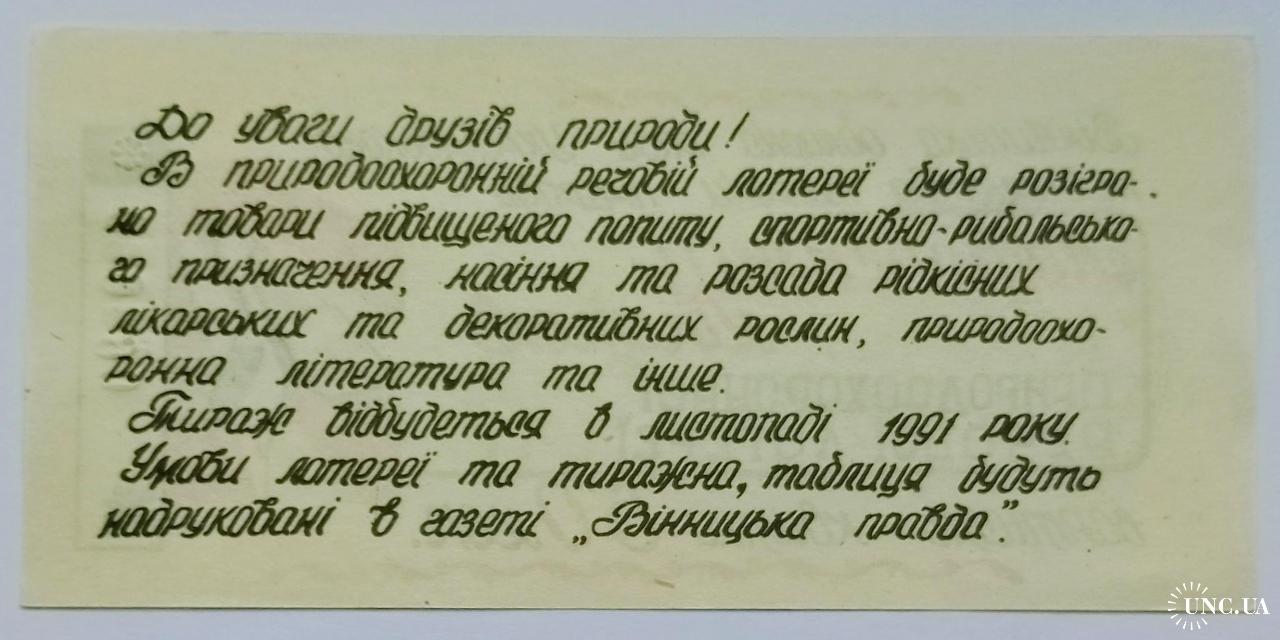 До уваги друзів природи!
В природоохоронній речовій лотереї буде розігра-
но товари підвищеного попиту, спортивно-рибальсько-
го призначення, насіння та розсада рідкісних
лікарських та декоративних рослин, природоохо-
ронна література та інше.
Тираж відбудеться в листопаді 1991 року.
Умови лотереї та тиражна, таблиця будуть
надруковані в газеті „Вінницька правда".
UNC.UA